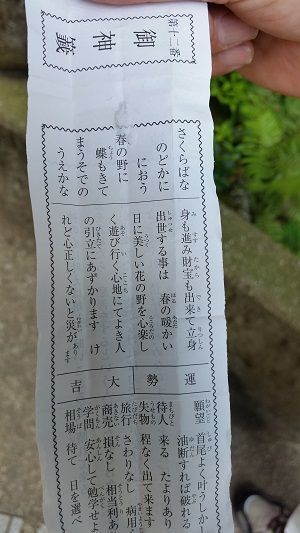 第十二番
御神籤
さくらばな
のどかに
におう
春の野に
蝶もきて
まうそでの
うえかな
身も進み財宝も出来て立身
出世する事は 春の暖かい
日に美しい花の野を心楽し
く遊び行く心地にてよき人
の引立にあずかります け
れど心正しくないと災があります
運勢 大吉
願望 首尾よく叶うしかし
油断すれば破れる
待人 来る たよりあり
失物 程なく出て来ます
旅行 さわりなし 病用
商売 損なし 相当利あ
学問 安心して勉学せよ
相場 待て 日を選べ